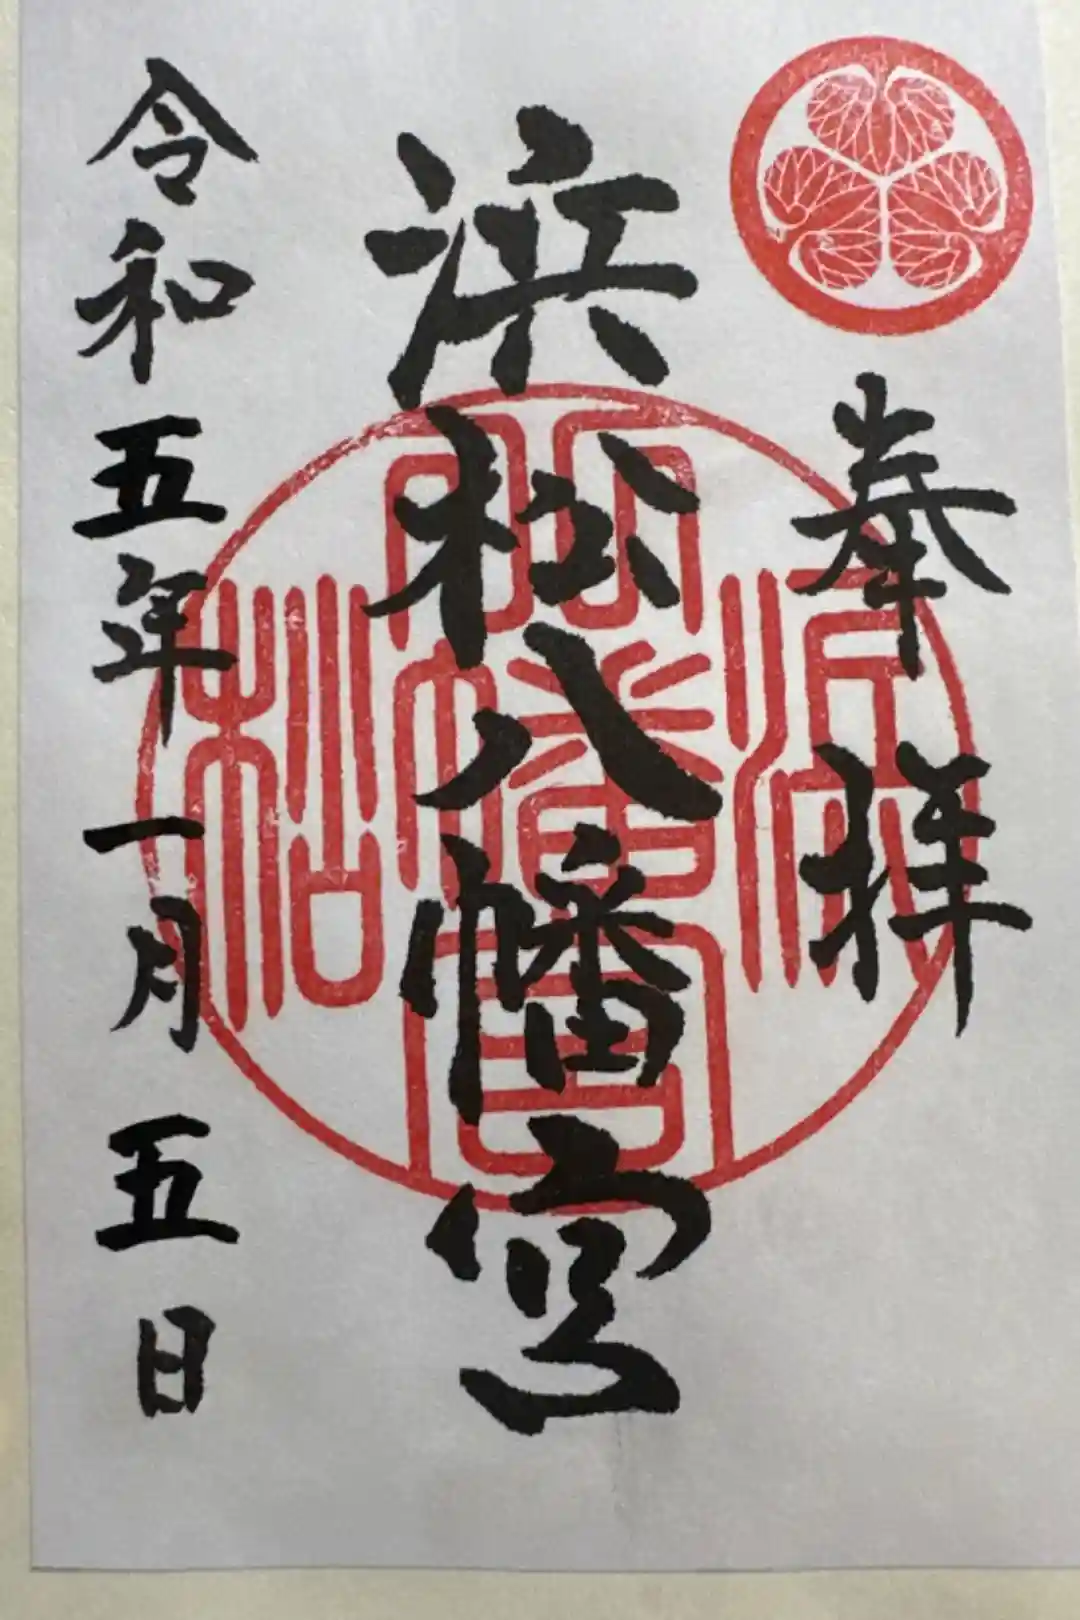 奉拝
浜松八幡宮
令和五年一月五日
浜松
八幡宮